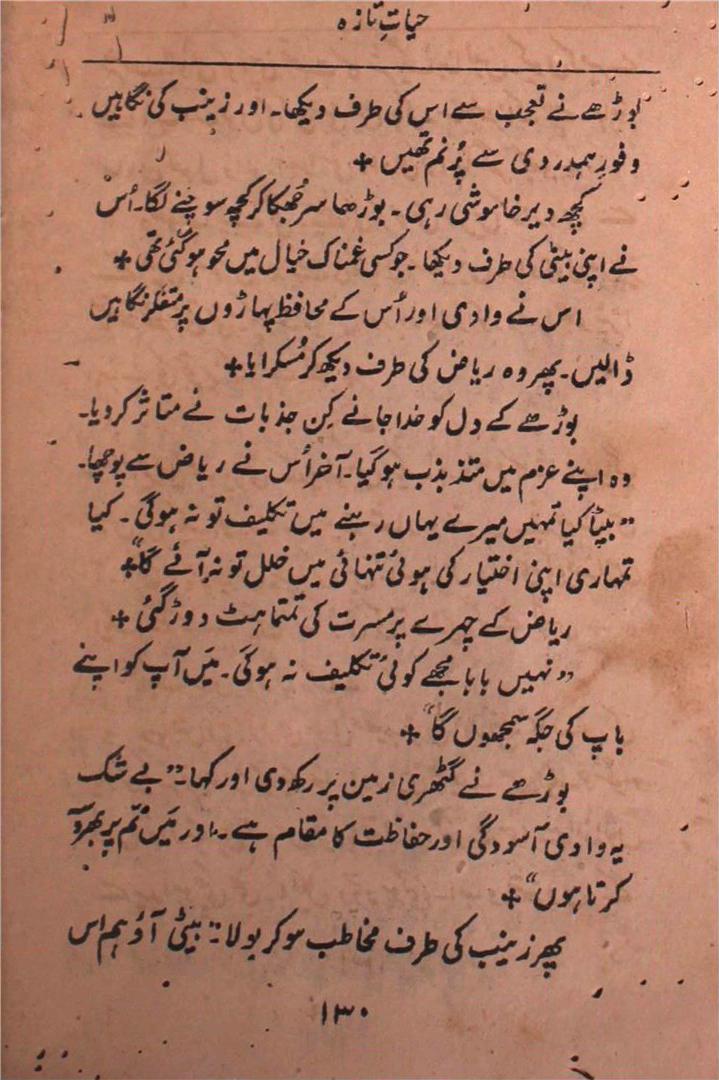 حیاتِ تازہ
بوڑھے نے تعجب سے اس کی طرف دیکھا۔ اور زینب کی نگاہیں
وفورِ ہمدردی سے پُرنم تھیں +
کچھ دیر خاموشی رہی۔ بوڑھا سر جُھکا کر کچھ سوچنے لگا۔ اُس
نے اپنی بیٹی کی طرف دیکھا۔ جو کسی غمناک خیال میں محو ہو گئی تھی +
اس نے وادی اور اُس کے محافظ پہاڑوں پر متفکر نگاہیں
ڈالیں۔ پھر وہ ریاض کی طرف دیکھ کر مُسکرایا +
بوڑھے کے دل کو خدا جانے کِن جذبات نے متاثر کر دیا۔
وہ اپنے عزم میں متذبذب ہو گیا۔ آخر اُس نے ریاض سے پوچھا۔
”بیٹا کیا تمہیں میرے یہاں رہنے میں تکلیف تو نہ ہوگی۔ کیا
تمہاری اپنی اختیار کی ہوئی تنہائی میں خلل تو نہ آئے گا“ +
ریاض کے چہرے پر مسرت کی تمتماہٹ دوڑ گئی +
”نہیں بابا مجھے کوئی تکلیف نہ ہوگی۔ مَیں آپ کو اپنے
باپ کی جگہ سمجھوں گا“ +
بوڑھے نے گٹھری زمین پر رکھ دی اور کہا۔ ”بے شک
یہ وادی آسودگی اور حفاظت کا مقام ہے۔ اور مَیں تُم پر بھروسہ
کرتا ہوں“ +
پھر زینب کی طرف مخاطب ہو کر بولا: ”بیٹی آؤ ہم اس
۱۳۰